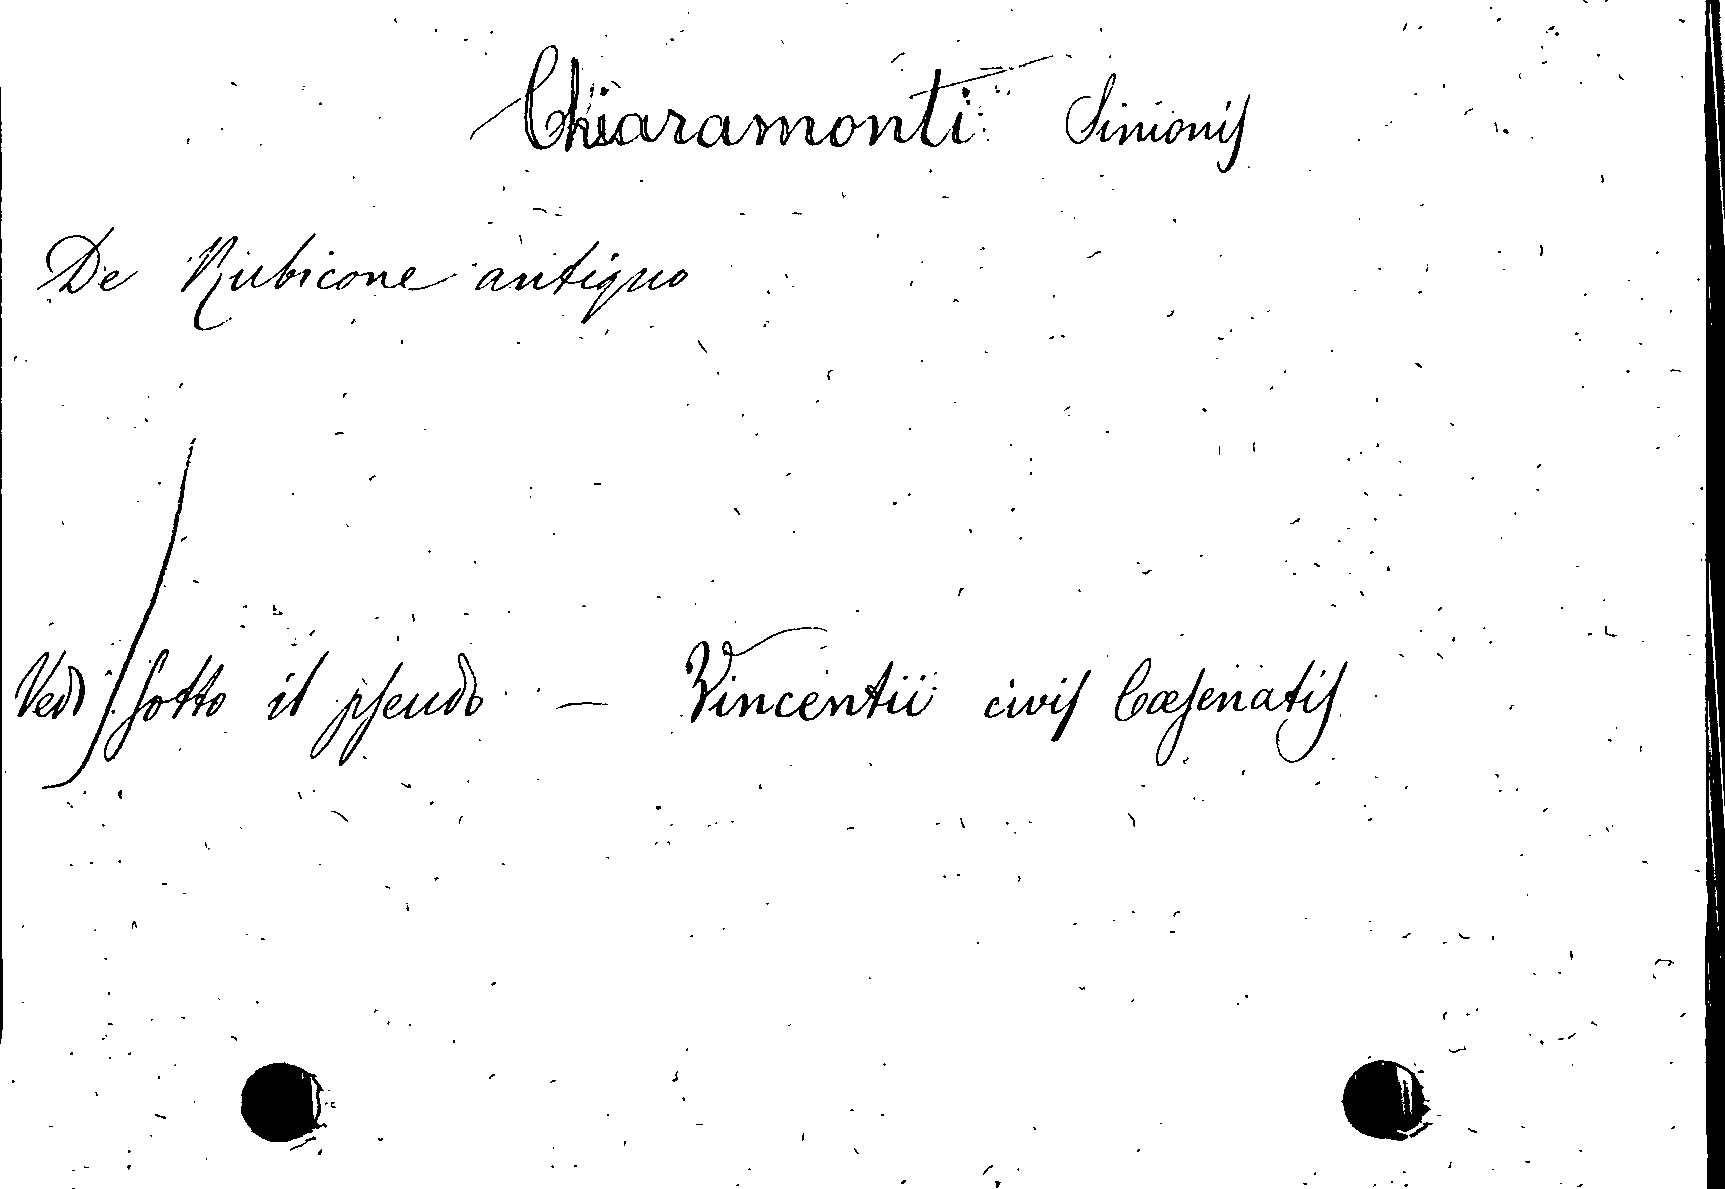 Chiaramonti Simonis
De Rubicone antiquo
Vedi sotto il pseudo — Vincentii civis Cæsenatis